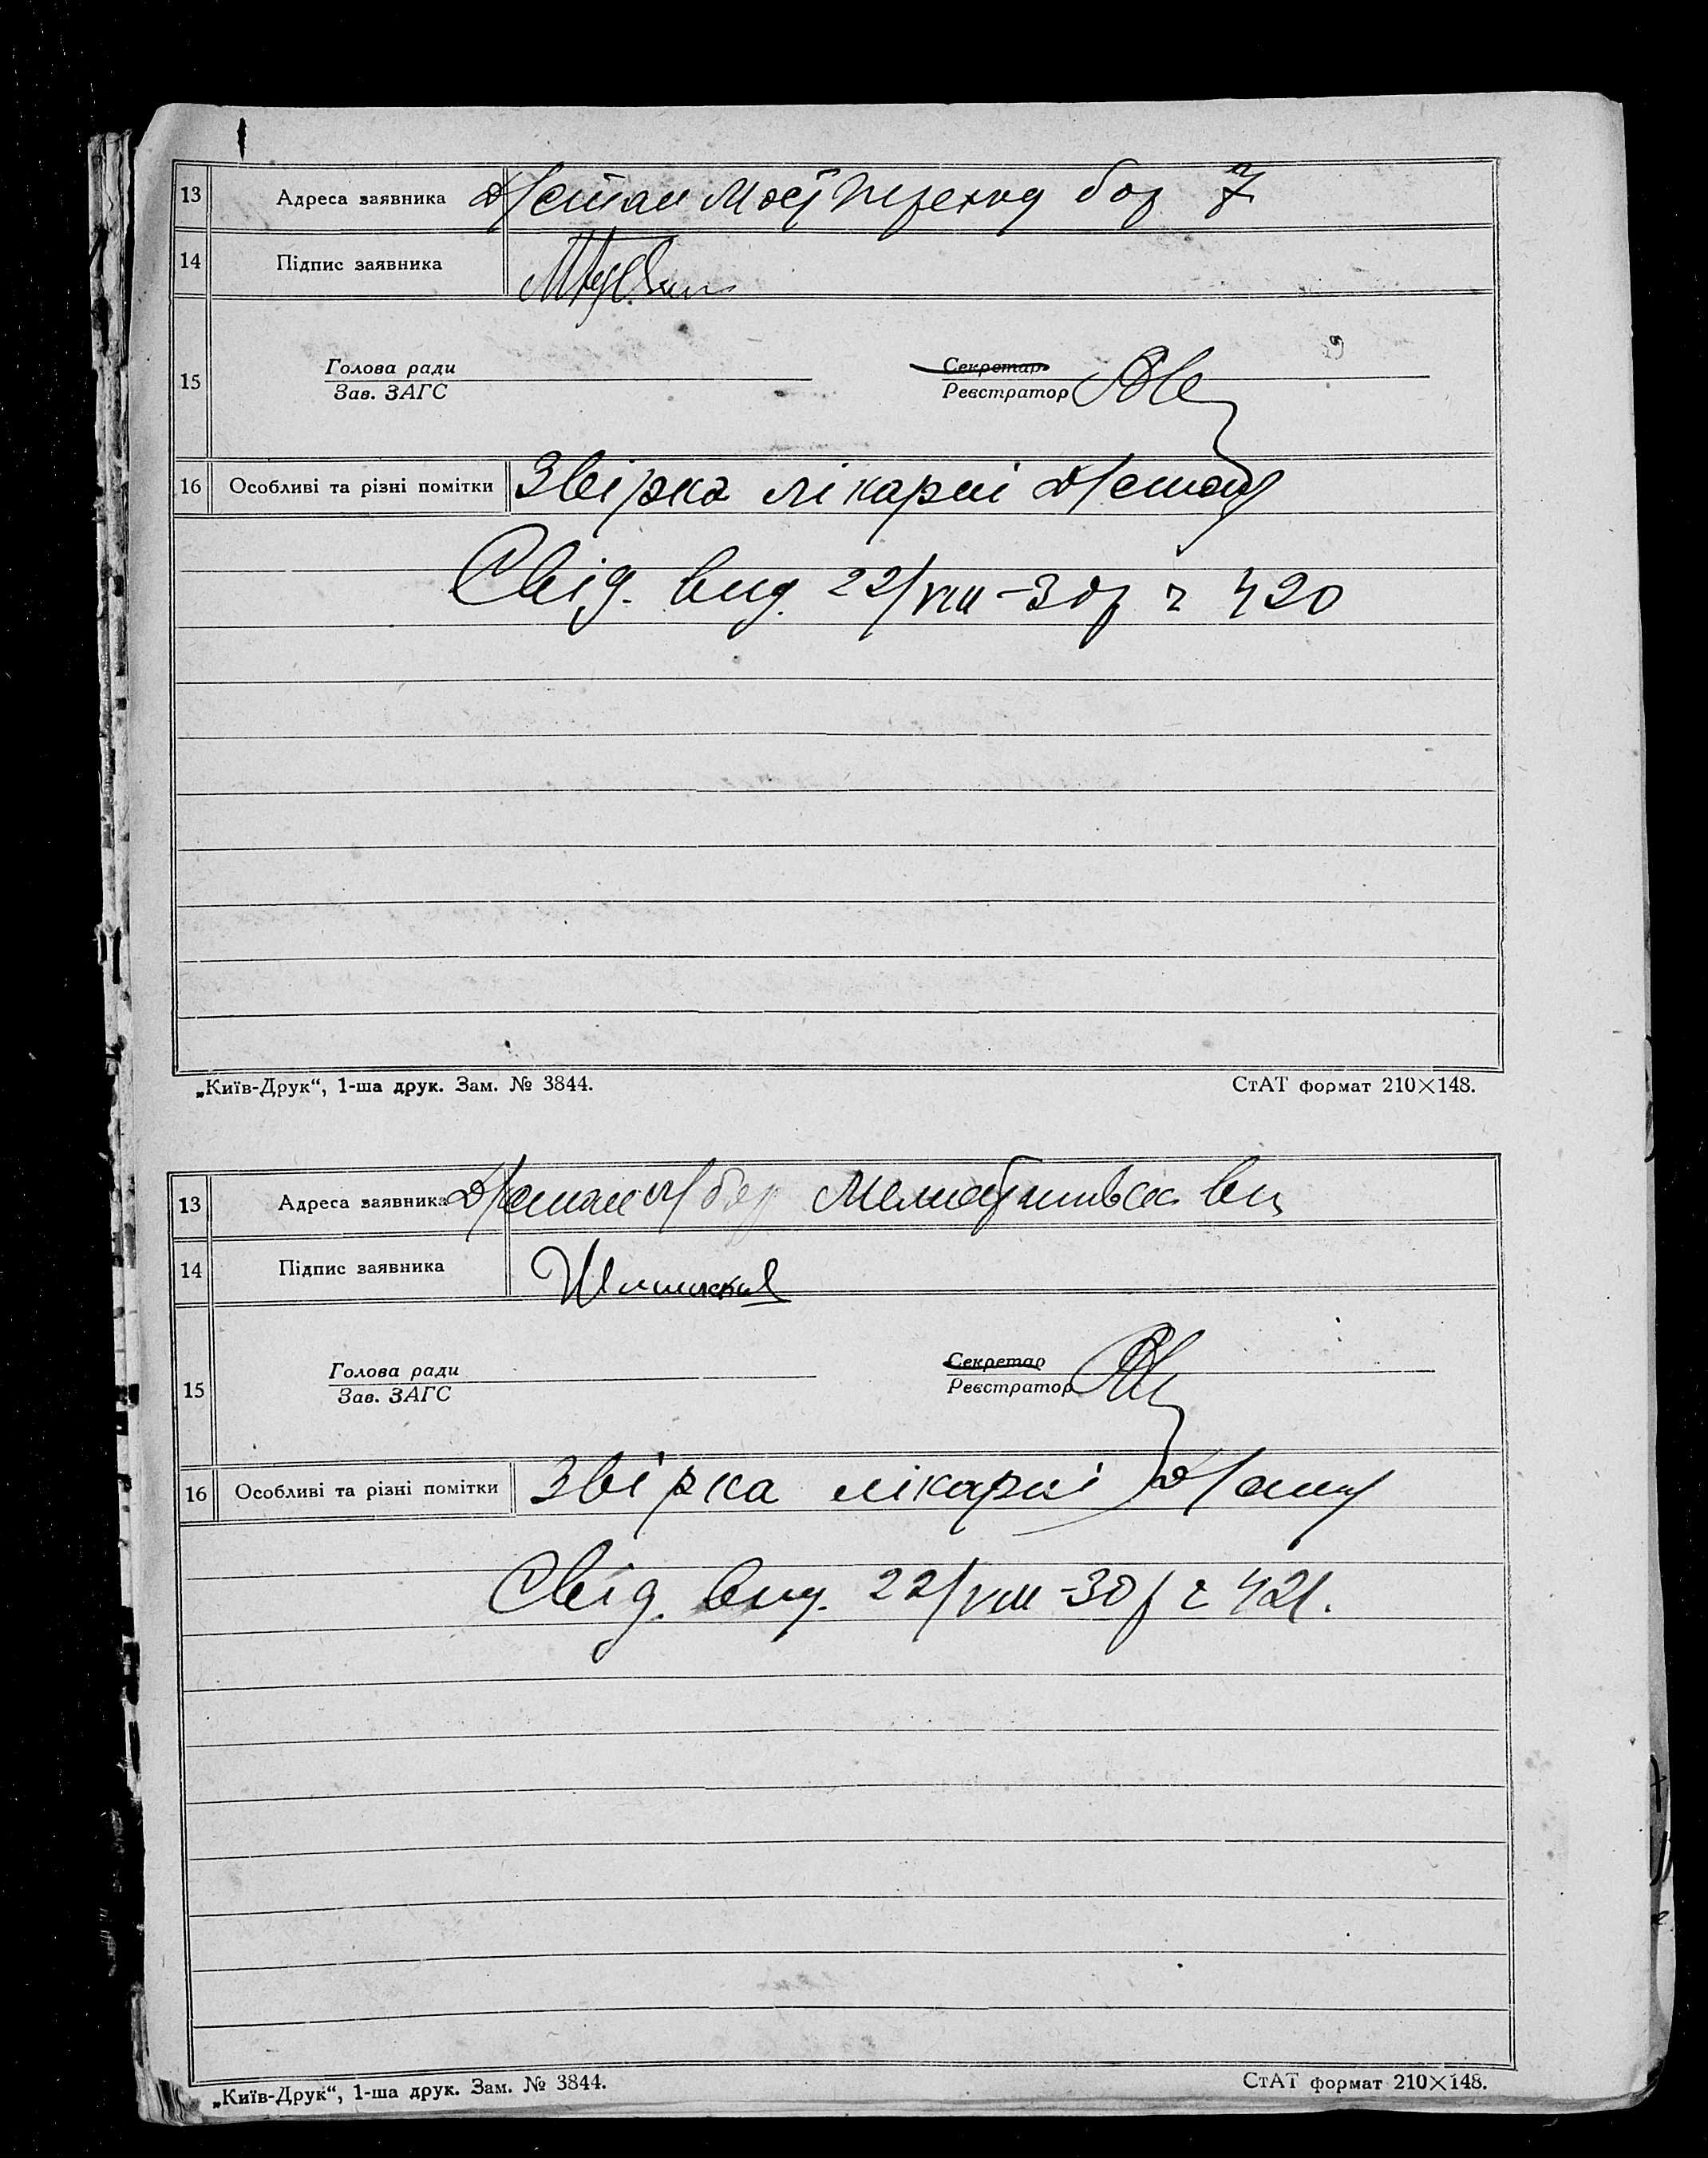 13 Адреса заявника Д/стан Мост Переход бар 7
14 Підпис заявника
15 Голова ради Секретар
Зав. ЗАГС Реєстратор
16 Особливі та різні помітки Звірка лікарні Д/стан
Свід. вид. 22/VIII-30р ч 420
„Київ-Друк“, 1-ша друк. Зам. № 3844. СтАТ формат 210×148.
13 Адреса заявника Д/стан вул
14 Підпис заявника
15 Голова ради Секретар
Зав. ЗАГС Реєстратор
16 Особливі та різні помітки Звірка лікарні Д/стан
Свід. вид. 22/VIII-30р ч 421.
„Київ-Друк“, 1-ша друк. Зам. № 3844. СтАТ формат 210×148.